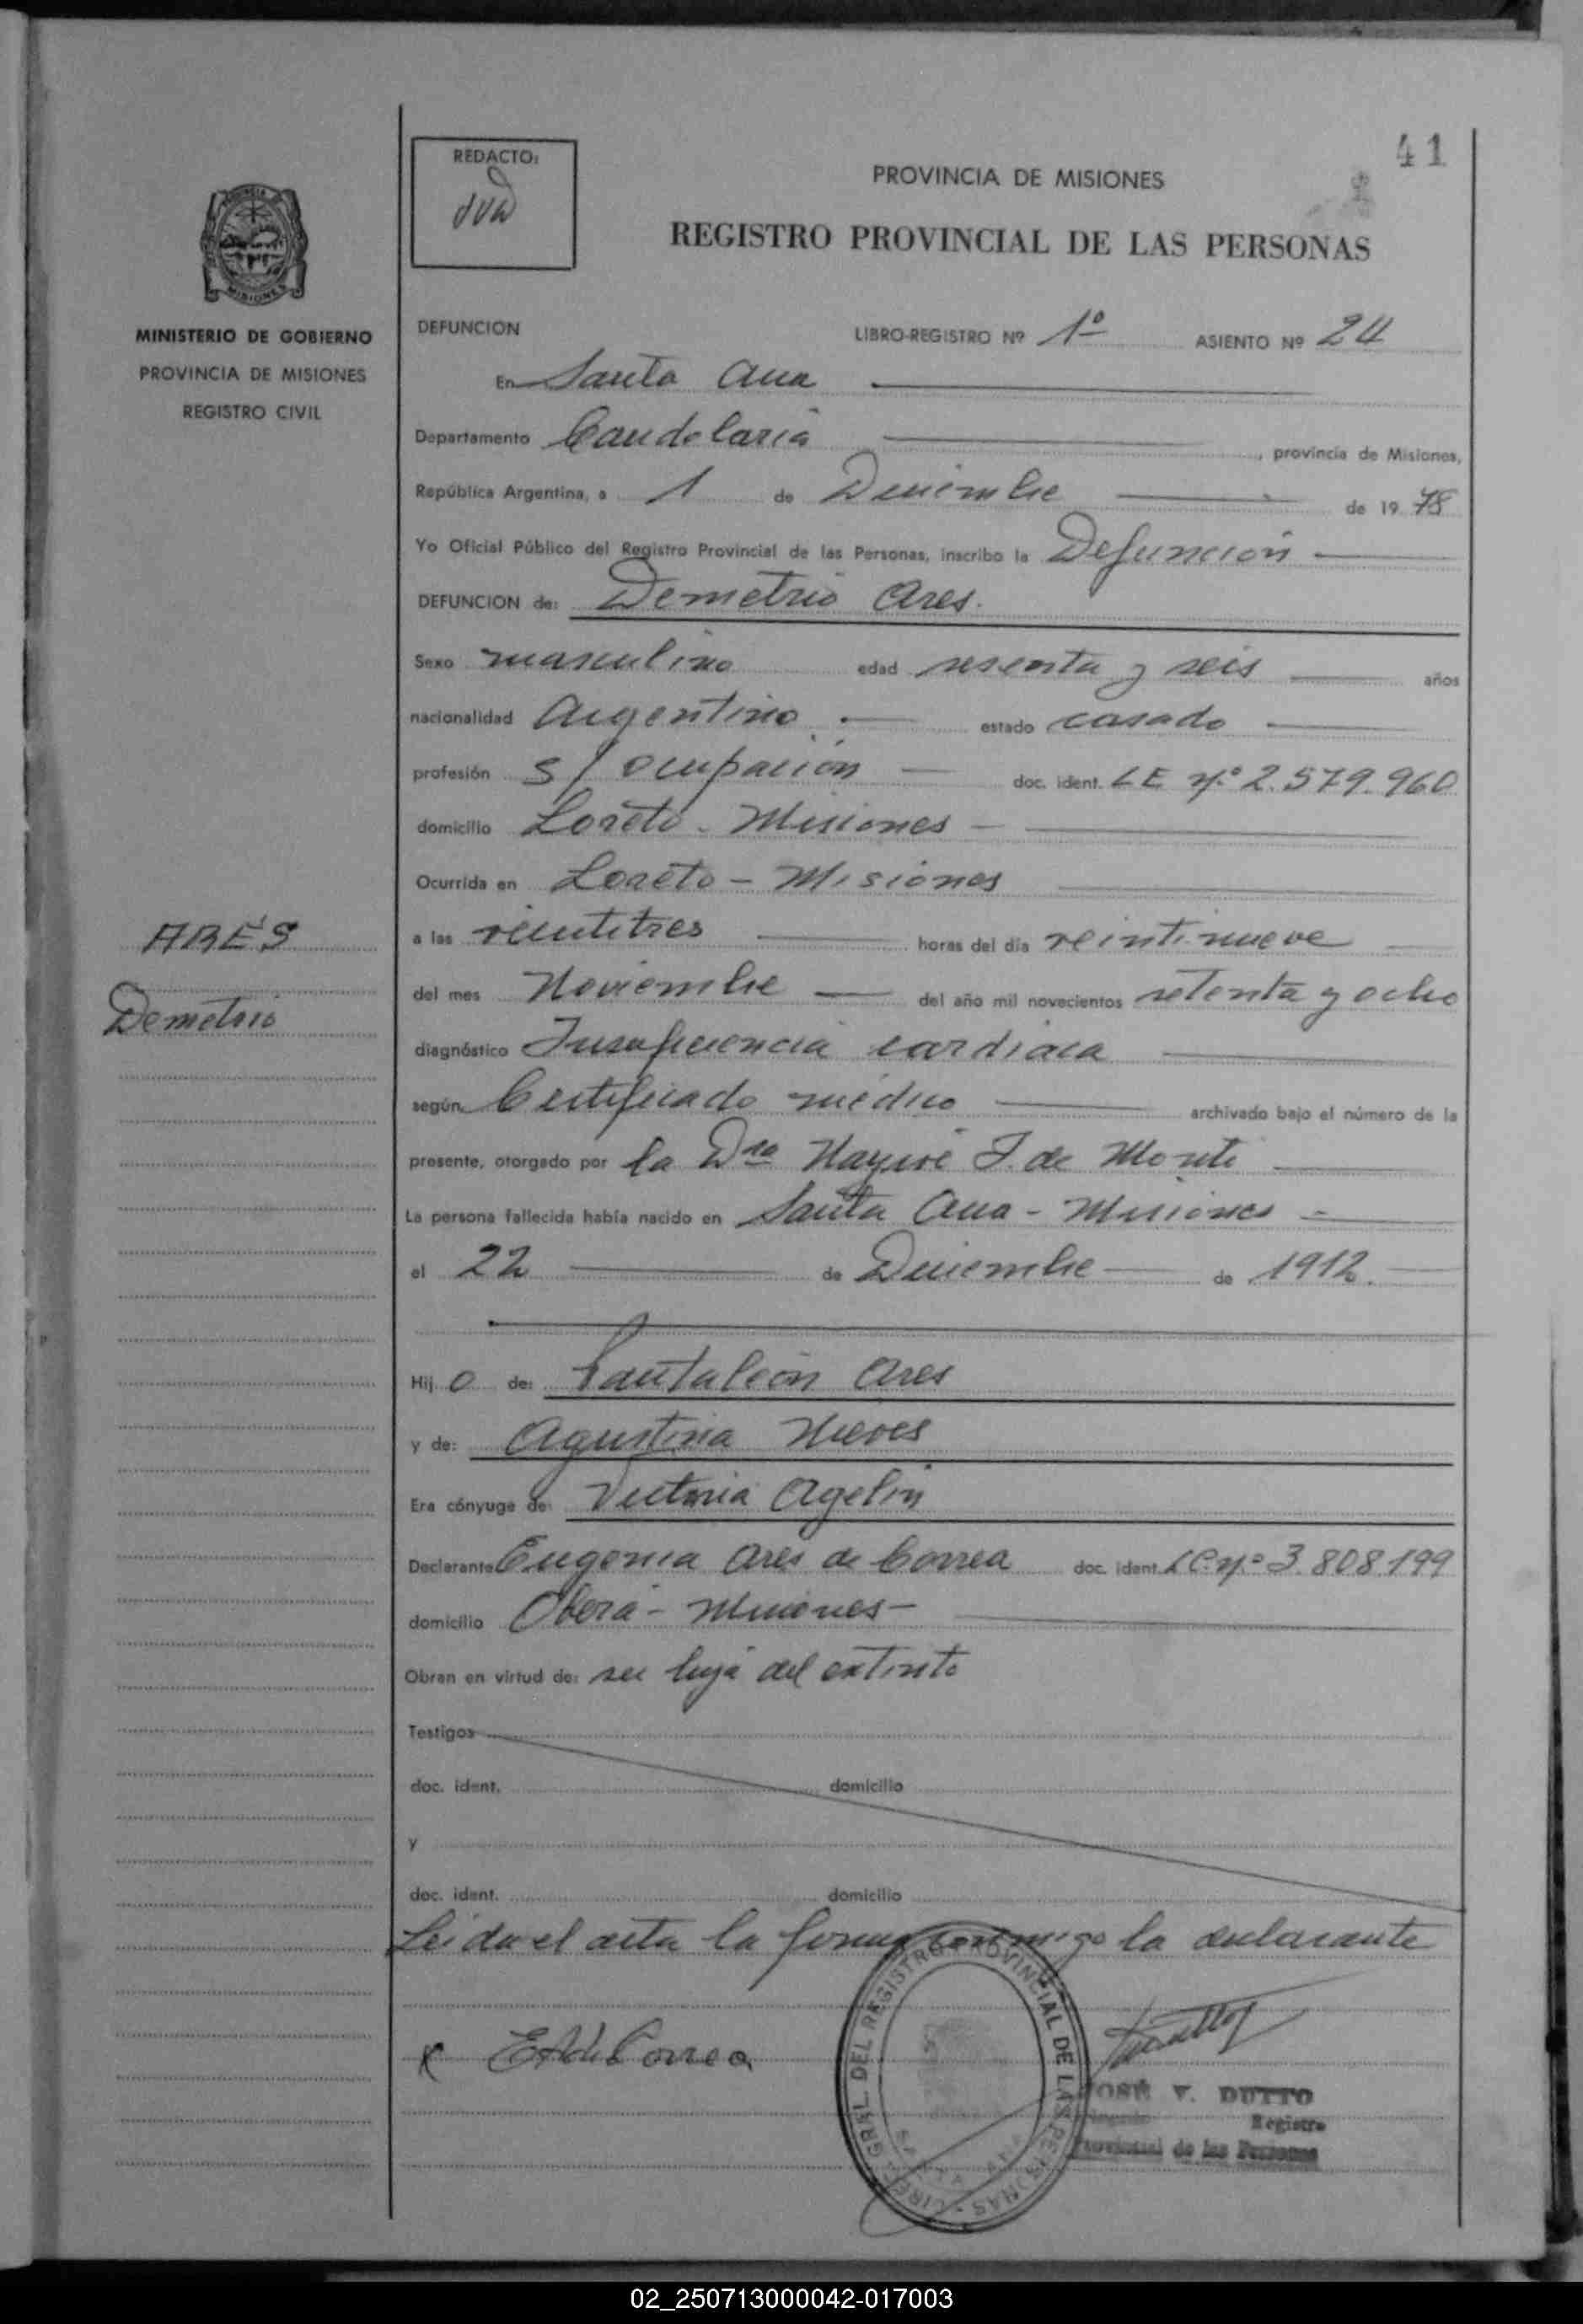 41
REDACTO:
PROVINCIA DE MISIONES
REGISTRO PROVINCIAL DE LAS PERSONAS
MINISTERIO DE GOBIERNO
PROVINCIA DE MISIONES
REGISTRO CIVIL
DEFUNCION LIBRO-REGISTRO Nº 1º ASIENTO Nº 24
En Santa Ana
Departamento Candelaria, provincia de Misiones,
República Argentina, a 1 de Diciembre de 1978
Yo Oficial Público del Registro Provincial de las Personas, inscribo la Defunción
DEFUNCION de: Demetrio Ares.
Sexo masculino edad sesenta y seis años
nacionalidad Argentino estado casado
profesión s/ ocupación doc. ident. LE Nº 2.579.960
domicilio Loreto - Misiones
Ocurrida en Loreto - Misiones
ARES
Demetrio
a las veintitres horas del día veintinueve
del mes Noviembre del año mil novecientos setenta y ocho
diagnóstico Insuficiencia cardiaca
según Certificado médico archivado bajo el número de la
presente, otorgado por la Dra de Monti
La persona fallecida había nacido en Santa Ana - Misiones
el 22 de Diciembre de 1912.
Hij o de: Pantaleón Ares
y de: Agustina Nieves
Era cónyuge de: Victoria Agelin
Declarante Eugenia Ares de Correa doc. ident. LC Nº 3.808.199
domicilio Oberá - Misiones -
Obran en virtud de: ser hija del extinto
Testigos
doc. ident. domicilio
y
doc. ident. domicilio
Leida el acta la firma conmigo la declarante
x EAdeCorrea
DIREC. GRAL. DEL REGISTRO PROVINCIAL DE LAS PERSONAS
SANTA ANA
JOSE V. DUTTO
Registro
Provincial de las Personas
02_250713000042-017003